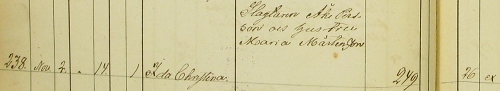 Åke Pers-
son och Hustru
Maria Mårtensson
238. Nov. 2. 14 1 Ida Christina. 249 26 ex